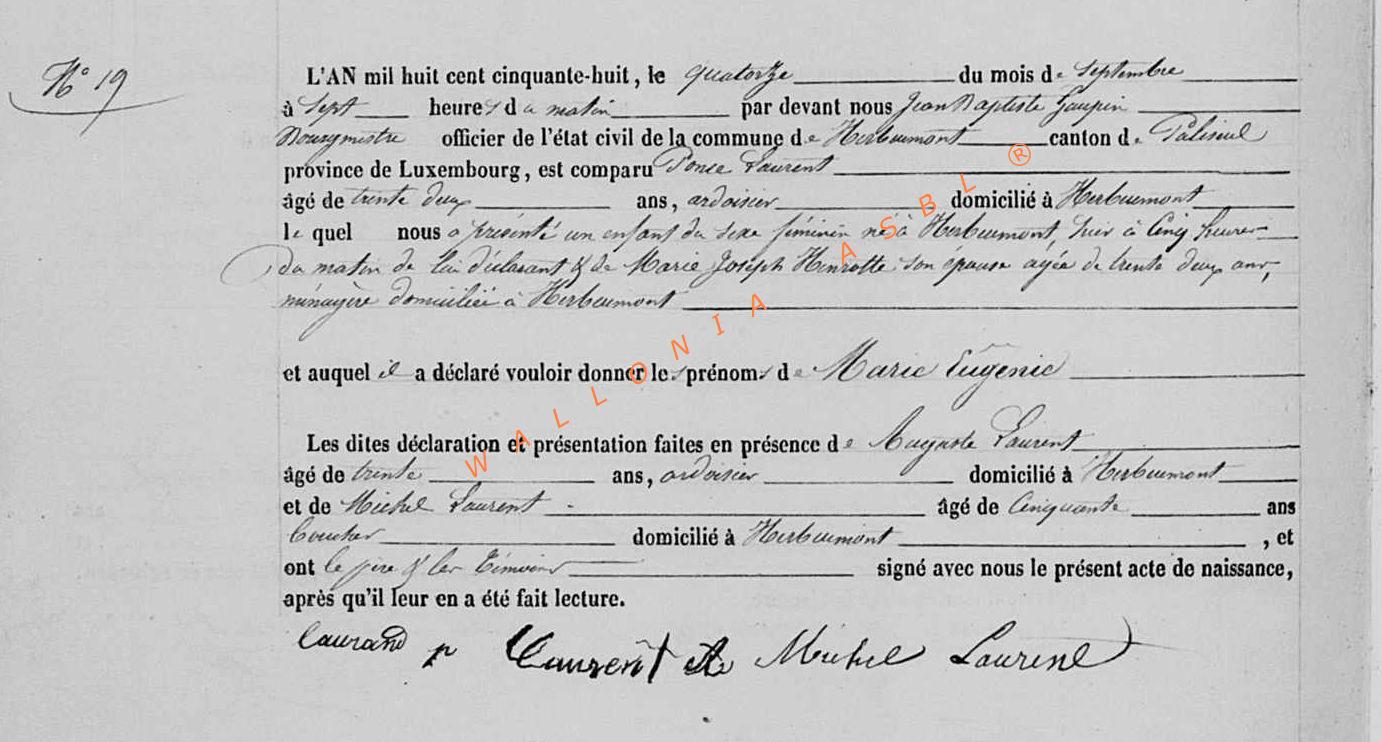 N° 19
L'AN mil huit cent cinquante-huit, le quatorze du mois de Septembre
à Sept heures du matin par devant nous Jean Baptiste
Bourgmestre officier de l'état civil de la commune de Herbeumont canton de Paliseul
province de Luxembourg, est comparu Ponce Laurent
âgé de trente deux ans, ardoisier domicilié à Herbeumont
le quel nous a présenté un enfant du sexe féminin né à Herbeumont, hier à Cinq heures
du matin de lui déclarant & de Marie Joseph Henrotte son epouse agée de trente deux ans,
ménagère domiciliée à Herbeumont
et auquel il a déclaré vouloir donner les prénoms de Marie Eugénie
Les dites déclaration et présentation faites en présence de Auguste Laurent
âgé de trente ans, ardoisier domicilié à Herbeumont
et de Michel Laurent âgé de Cinquante ans
domicilié à Herbeumont, et
ont le père & les témoins signé avec nous le présent acte de naissance,
après qu'il leur en a été fait lecture.
laurand p Laurent Michel Laurent
WALLONIA ASBL ®